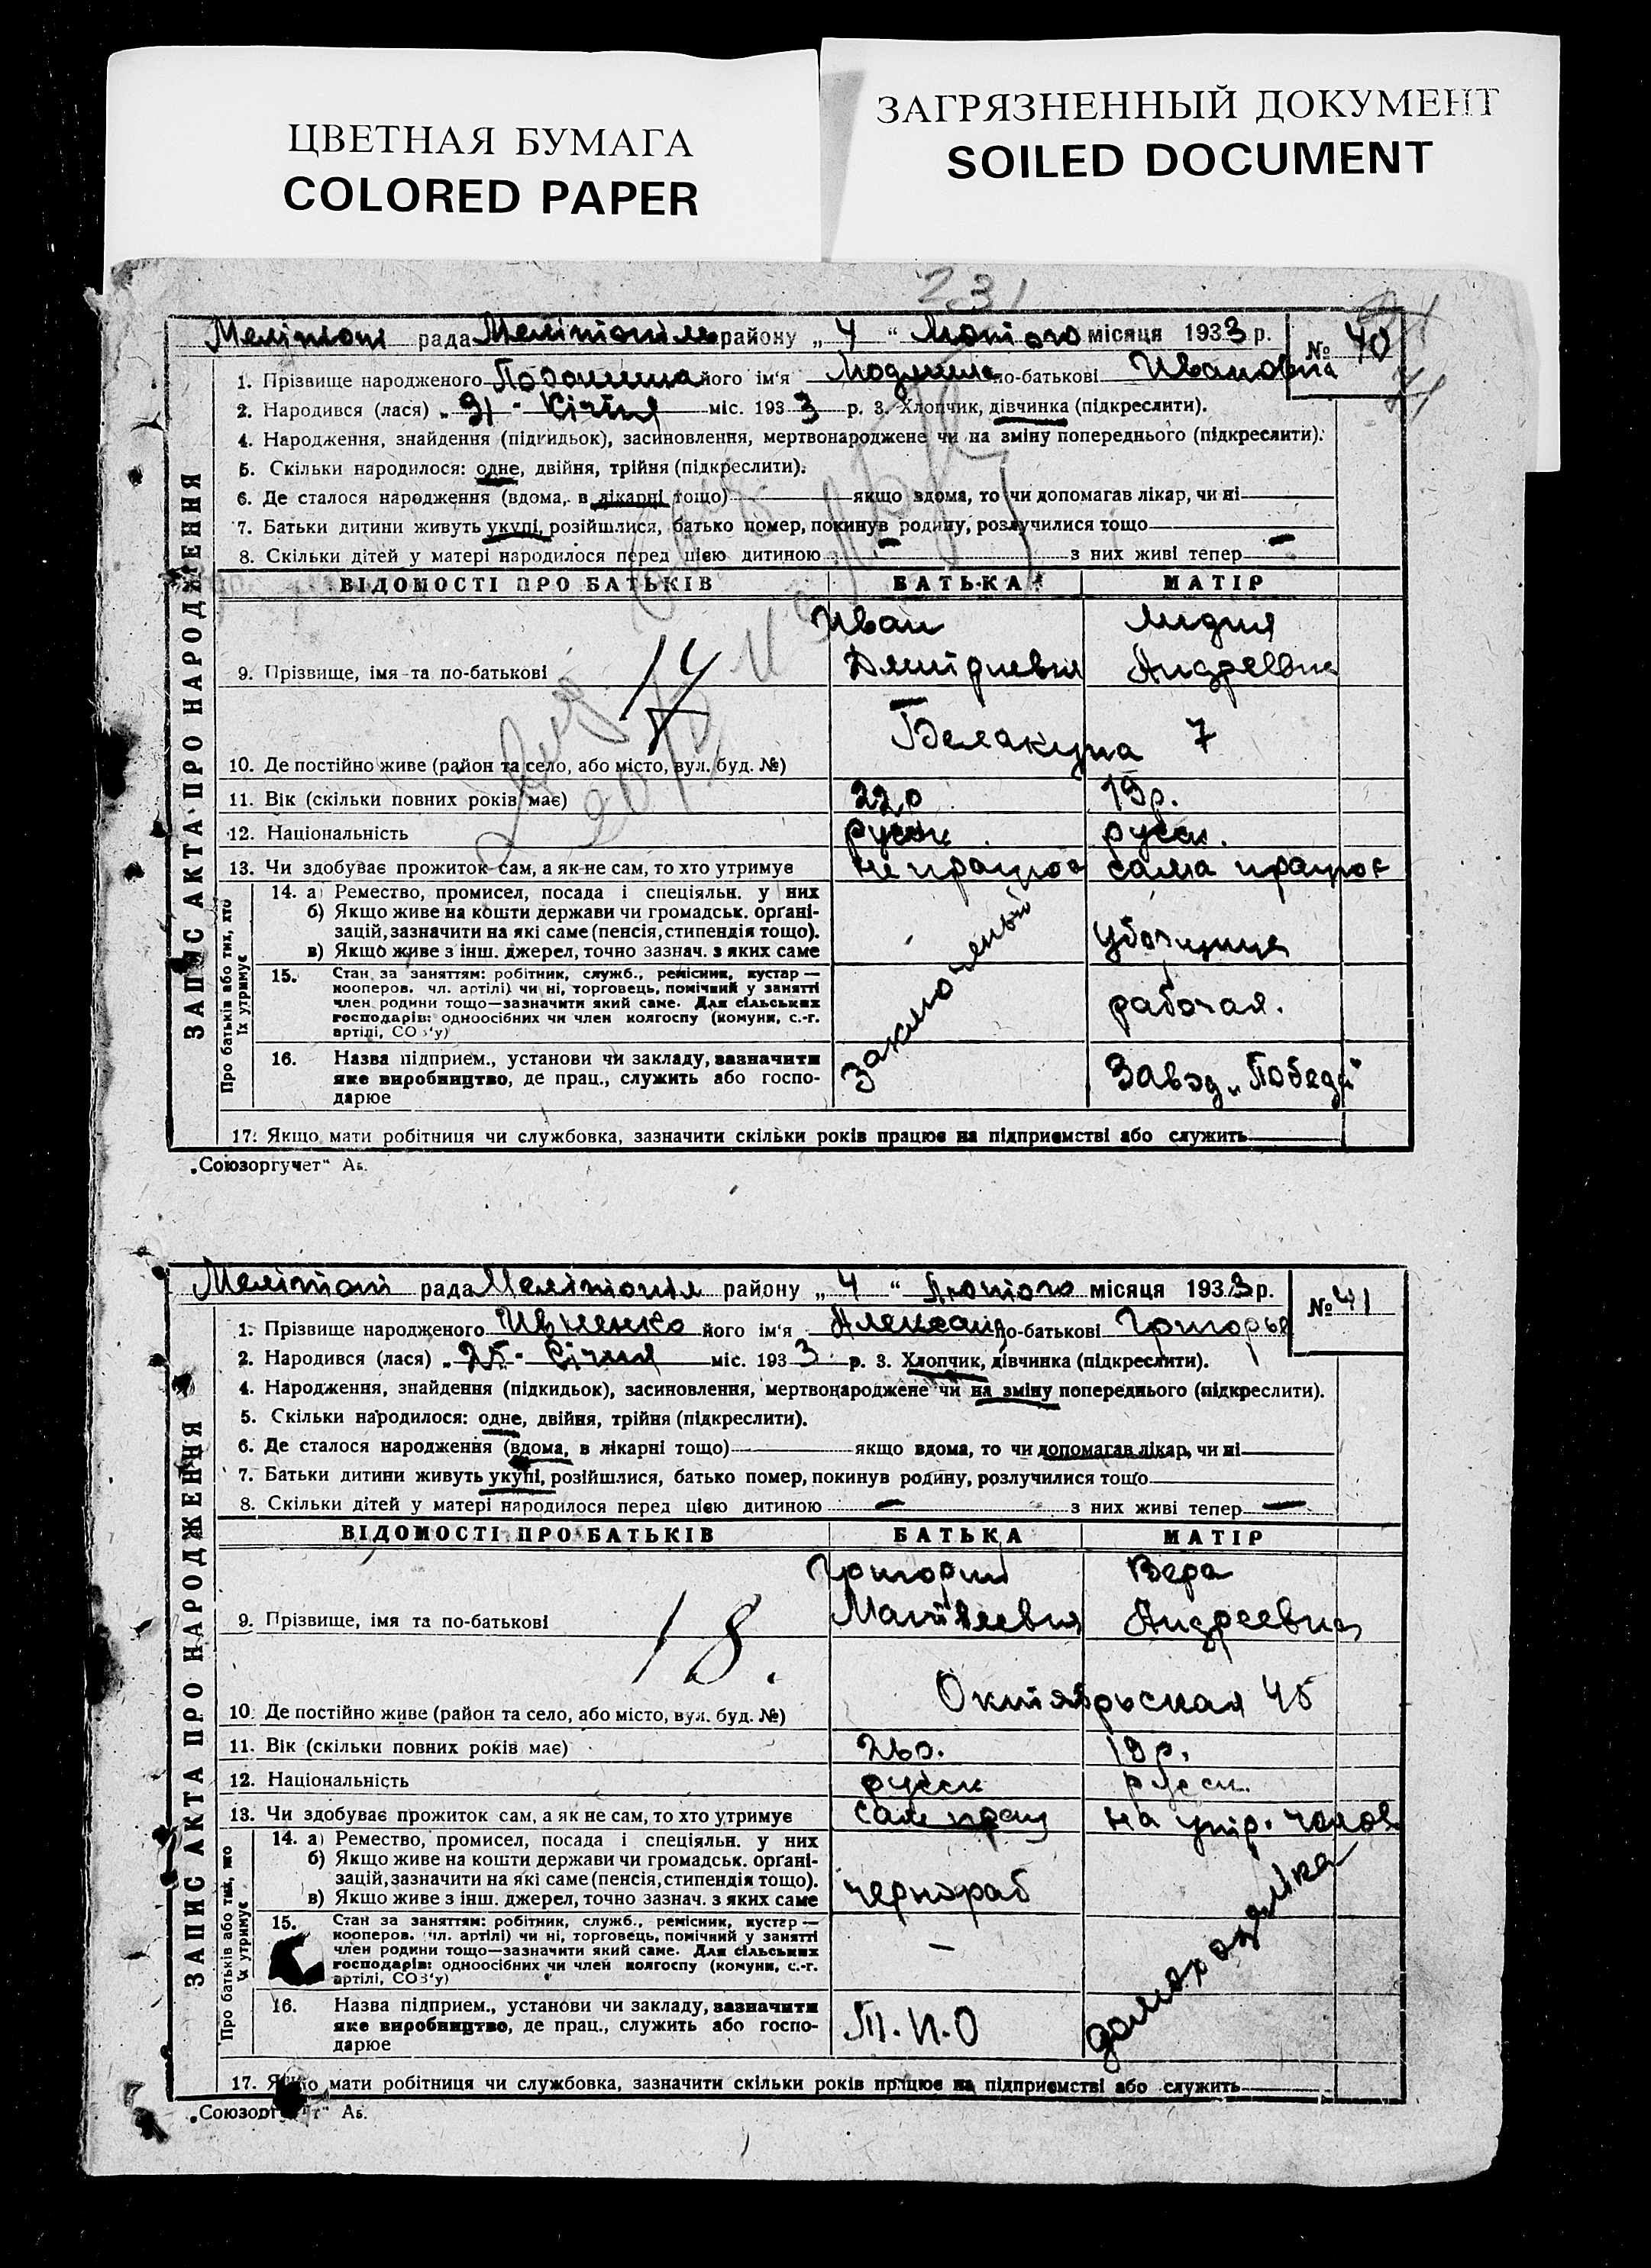 ЦВЕТНАЯ БУМАГА
COLORED PAPER
ЗАГРЯЗНЕННЫЙ ДОКУМЕНТ
SOILED DOCUMENT
231
Мелітоп рада Мелітопіль району „ 4 “ Лютого місяця 1933 р. № 40
1. Прізвище народженого його ім‘я Людмила по-батькові Ивановна
2. Народився (лася) „ 31 “ Січня міс. 193 3 р. 3. Хлопчик, дівчинка (підкреслити).
4. Народження, знайдення (підкидьок), засиновлення, мертвонароджене чи на зміну попереднього (підкреслити).
5. Скільки народилося: одне, двійня, трійня (підкреслити).
6. Де сталося народження (вдома, в лікарні тощо) якщо вдома, то чи допомагав лікар, чи ні
7. Батьки дитини живуть укупі, розійшлися, батько помер, покинув родину, розлучилися тощо
8. Скільки дітей у матері народилося перед цією дитиною — з них живі тепер —
ЗАПИС АКТА ПРО НАРОДЖЕННЯ
ВІДОМОСТІ ПРО БАТЬКІВ БАТЬКА МАТІР
Иван Лидия
9. Прізвище, імя та по-батькові 14 Андреевна
Белакуна 7
10. Де постійно живе (район та село, або місто, вул. буд. №)
11. Вік (скільки повних років має) 22р 19р.
12. Національність русск. русск.
13. Чи здобуває прожиток сам, а як не сам, то хто утримує не працює сама працює
Про батьків або тих, хто їх утримує
14. а) Ремество, промисел, посада і спеціяльн. у них
б) Якщо живе на кошти держави чи громадськ. орґані-
зацій, зазначити на які саме (пенсія, стипендія тощо).
в) Якщо живе з інш. джерел, точно зазнач. з яких саме
Заключеный
уборщица
15. Стан за заняттям: робітник, служб., ремісник, кустар —
кооперов. чл. артілі) чи ні, торговець, помічний у занятті
член родини тощо—зазначити який саме. Для сільських
господарів: одноосібних чи член колгоспу (комуни, с.-г.
артілі, СОЗ‘у)
рабочая.
16. Назва підприєм., установи чи закладу, зазначити
яке виробництво, де прац., служить або госпо-
дарює
Завод „Победа“
17. Якщо мати робітниця чи службовка, зазначити скільки років працює на підприємстві або служить
„Союзоргучет“ Аб.
Мелітоп рада Мелітопіль району „ 4 “ Лютого місяця 1933 р. № 41
1. Прізвище народженого Ивненко його ім‘я Александ по-батькові Григорьев
2. Народився (лася) „ 25 “ Січня міс. 193 3 р. 3. Хлопчик, дівчинка (підкреслити).
4. Народження, знайдення (підкидьок), засиновлення, мертвонароджене чи на зміну попереднього (підкреслити).
5. Скільки народилося: одне, двійня, трійня (підкреслити).
6. Де сталося народження (вдома, в лікарні тощо) якщо вдома, то чи допомагав лікар, чи ні
7. Батьки дитини живуть укупі, розійшлися, батько помер, покинув родину, розлучилися тощо
8. Скільки дітей у матері народилося перед цією дитиною — з них живі тепер —
ЗАПИС АКТА ПРО НАРОДЖЕННЯ
ВІДОМОСТІ ПРО БАТЬКІВ БАТЬКА МАТІР
Григорий Вера
9. Прізвище, імя та по-батькові 18. Матвеевич Андреевна
Октябрьская 45
10. Де постійно живе (район та село, або місто, вул. буд. №)
11. Вік (скільки повних років має) 26р. 19р.
12. Національність русск русск.
13. Чи здобуває прожиток сам, а як не сам, то хто утримує сам прац на утр. чолов
Про батьків або тих, що їх утримує
14. а) Ремество, промисел, посада і спеціяльн. у них
б) Якщо живе на кошти держави чи громадськ. орґані-
зацій, зазначити на які саме (пенсія, стипендія тощо).
в) Якщо живе з інш. джерел, точно зазнач. з яких саме
чернораб
домохозяйка
15. Стан за заняттям: робітник, служб., ремісник, кустар —
кооперов. чл. артілі) чи ні, торговець, помічний у занятті
член родини тощо—зазначити який саме. Для сільських
господарів: одноосібних чи член колгоспу (комуни, с.-г.
артілі, СОЗ‘у)
—
16. Назва підприєм., установи чи закладу, зазначити
яке виробництво, де прац., служить або госпо-
дарює
Т.П.О
17. Якщо мати робітниця чи службовка, зазначити скільки років працює на підприємстві або служить
„Союзоргучет“ Аб.